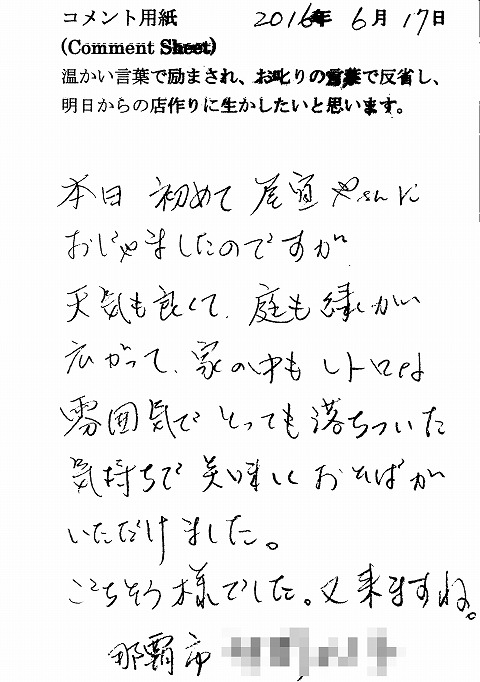 コメント用紙 2016年 6月 17日
(Comment Sheet)
温かい言葉で励まされ、お叱りの言葉で反省し、
明日からの店作りに生かしたいと思います。
本日 初めて 屋宜やさんに
おじゃましたのですが
天気も良くて、庭も緑がい
広がって、家の中も レトロな
雰囲気で とっても 落ちついた
気持ちで 美味しくおそばが
いただけました。
ごちそう様でした。又来ますね。
那覇市